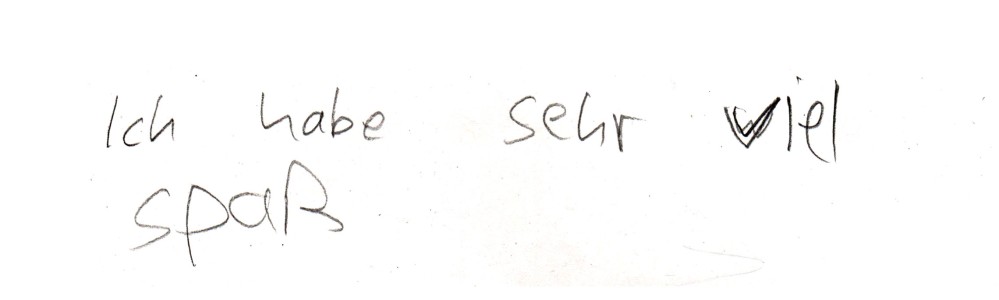 Ich habe sehr viel
spaß